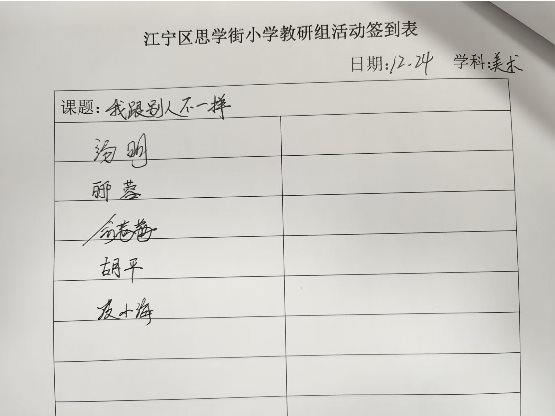 江宁区思学街小学教研组活动签到表
日期:12.24 学科:美术
课题:我跟别人不一样
汤明
聊蓉
胡平
皮小海